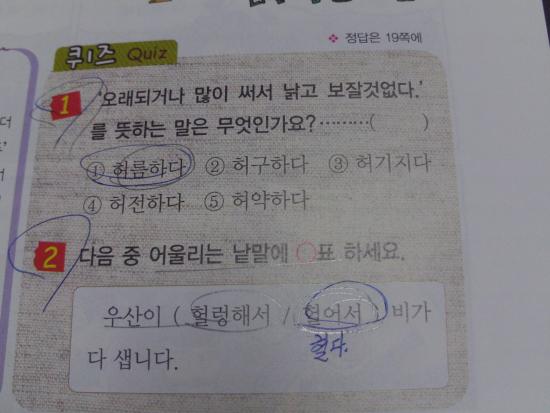 ❖ 정답은 19쪽에
퀴즈 Quiz
1 '오래되거나 많이 써서 낡고 보잘것없다.'
를 뜻하는 말은 무엇인가요?………( )
① 허름하다 ② 허구하다 ③ 허기지다
④ 허전하다 ⑤ 허약하다
2 다음 중 어울리는 낱말에 ○표 하세요.
우산이 ( 헐렁해서 / 헐어서 ) 비가
헐다.
다 샙니다.